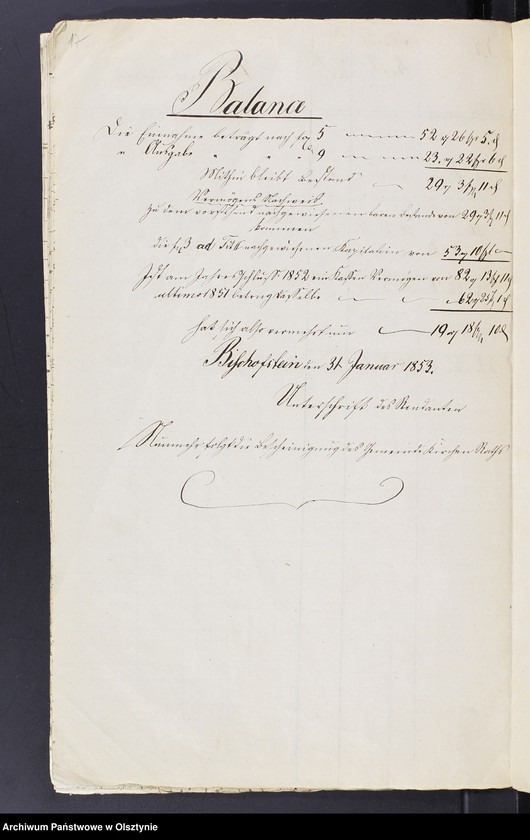 17
Balance
Die Einnahme beträgt nach pag 5 52 rt 26 sgr 5 d
" Ausgabe " " " 9 23 rt 22 sgr 6 d
Mithin bleibt Bestand 29 rt 3 sgr 11 d
Vermögens Nachweis
Zu dem vorstehend nachgewiesenen baaren Bestande von 29 rt 3 sgr 11 d
kommen
die pag 3 ad Tit II nachgewiesenen Kapitalien von 53 rt 10 sgr
Ist am Jahres Schluss 1852 ein Kassen Vermögen von 82 rt 13 sgr 11 d
ultimo 1851 betrug dasselbe 62 rt 25 sgr 1 d
hat sich also vermehrt um 19 rt 18 sgr 10 d
Bischofstein den 31 Januar 1853.
Unterschrift des Rendanten
Nunmehr folgt die Bescheinigung des Gemeinde Kirchen Raths
Archiwum Państwowe w Olsztynie